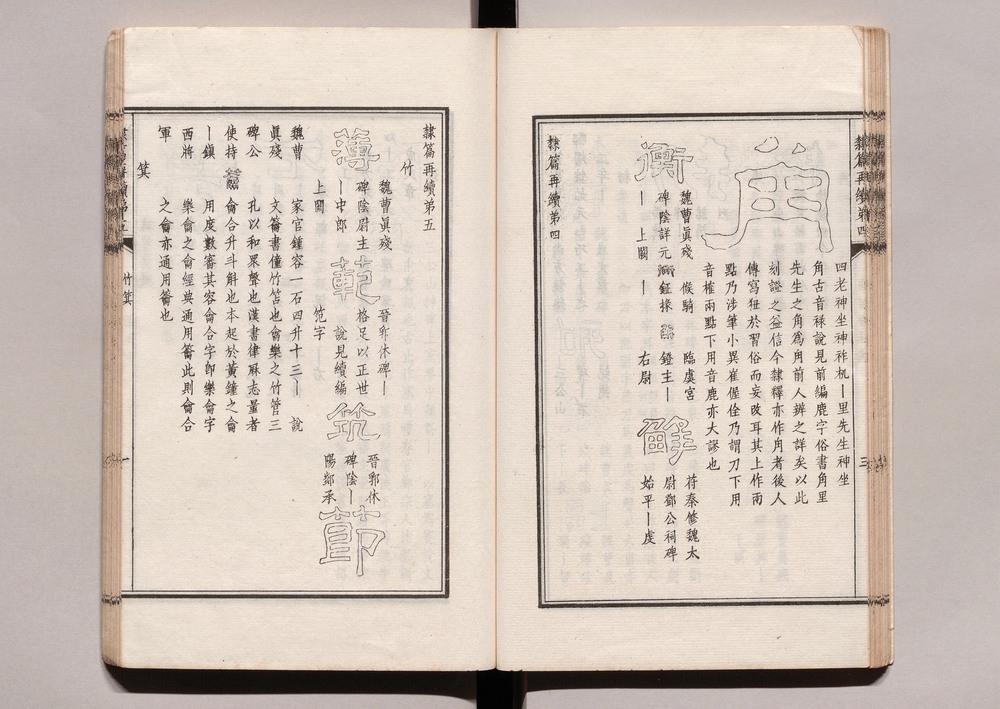 角
四老神坐神祚机丨里先生神坐
角古音祿說見前編鹿字俗書角里
先生之角為角前人辨之詳矣以此
刻證之益信今隸釋亦作角者後人
傳寫狃於習俗而妄改耳其上作兩
點乃涉筆小異崔偓佺乃謂刀下用
音榷兩點下用音鹿亦大謬也
衡
魏曹眞殘 候騎 臨虞宮
碑陰詳元 鉦採 鐙主丨
丨上闕 丨 右尉
鮮
苻秦修魏太
尉鄧公祠碑
始平丨虔
隸篇再續第四
隸篇再續第四
三
隸篇再續第五
竹
薄
魏曹眞殘
碑陰尉主
丨中郎
上闕
範
晉郛休碑丨
格足以正世
說見續編
笵字
筑
晉郛休
碑陰丨
陽鄭承
節
魏曹 家官鐘容一石四升十三丨 說
眞殘 文籥書僮竹笘也龠樂之竹管三
碑公 孔以和眾聲也漢書律厤志量者
使持 龠合升斗斛也本起於黃鐘之龠
丨鎭 用度數審其容龠合字卽樂龠字
西將 樂龠之龠經典通用籥此則龠合
軍 之龠亦通用籥也
箕
竹箕
一